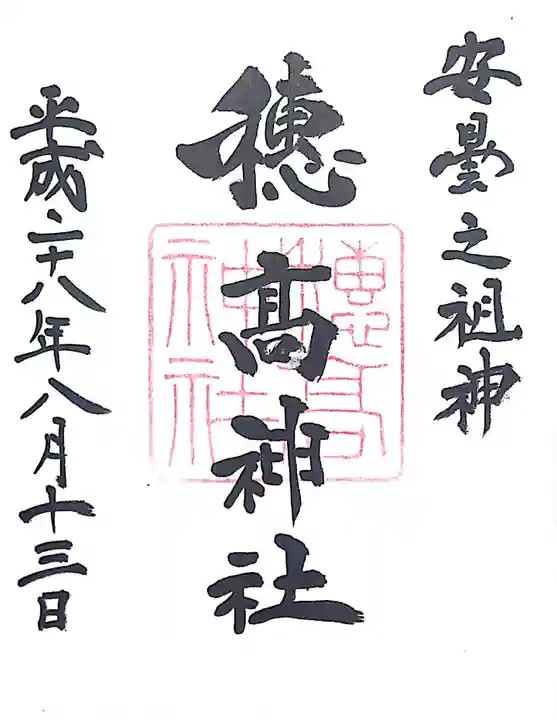 安曇之祖神
穂髙神社
穗高神社
平成二十八年八月十三日